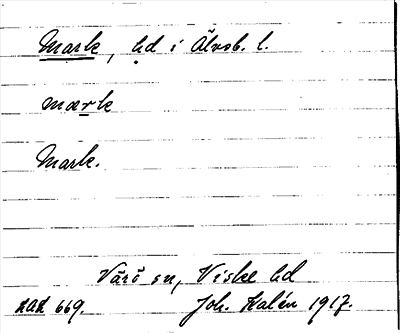 Mark, hd i Älvsb. l.
mark
Mark.
Värö sn, Viske hd
669. Joh. Kalén 1917.